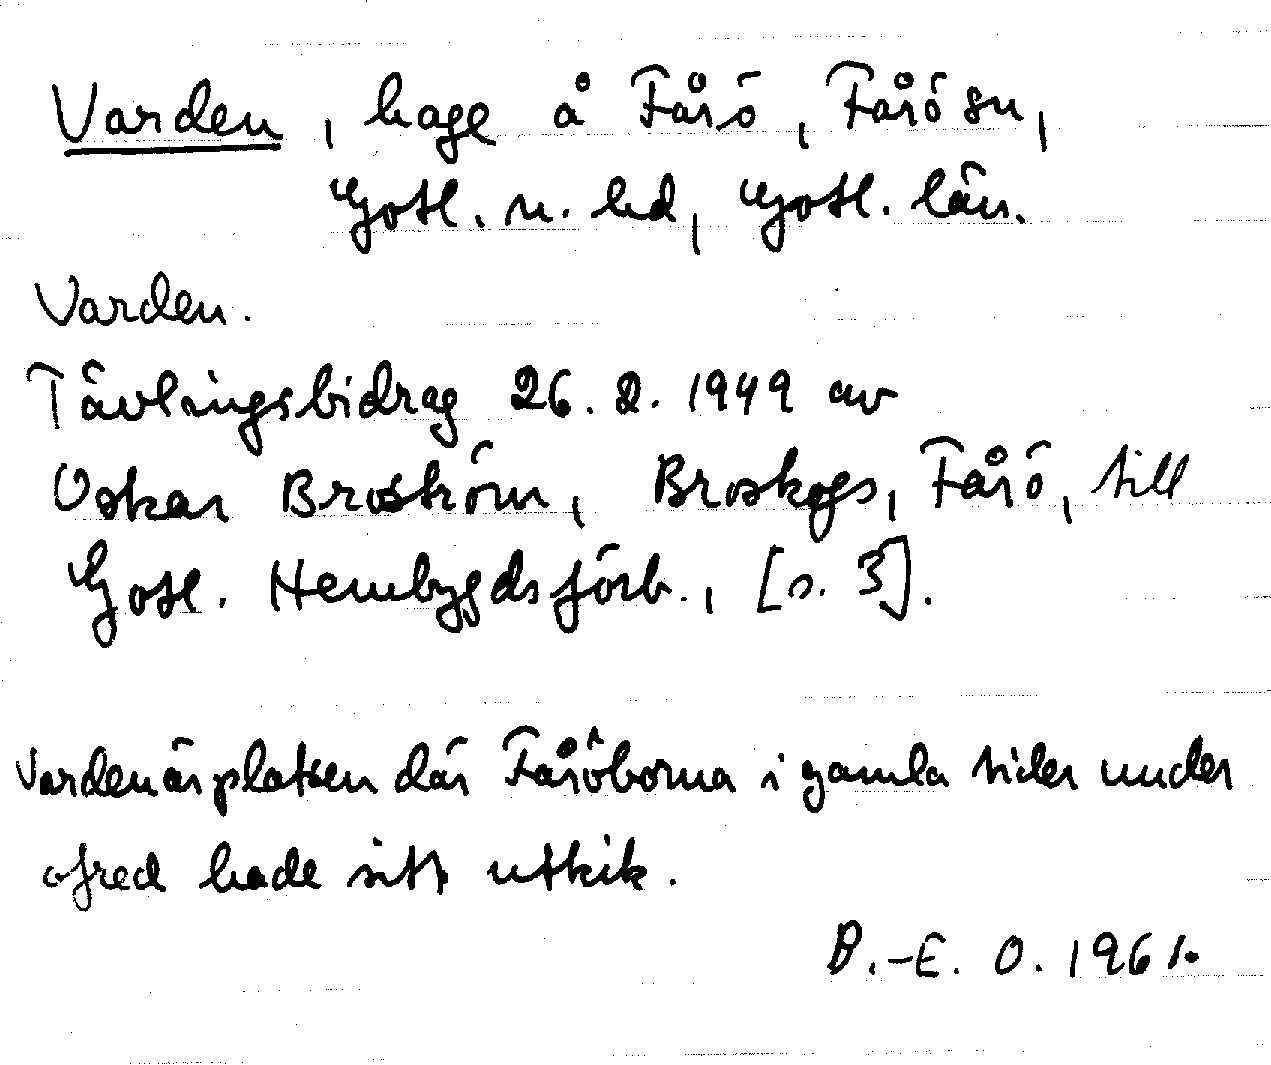 Varden, hage å Fårö, Fårö sn,
Gotl. n. hd, Gotl. län.
Varden.
Tävlingsbidrag 26. 2. 1949 av
Oskar Broström, Broskogs, Fårö, till
Gotl. Hembygdsförb., [s. 3].
Varden är platsen där Fåröborna i gamla tider under
ofred hade sitt utkik.
B.-E. O. 1961.